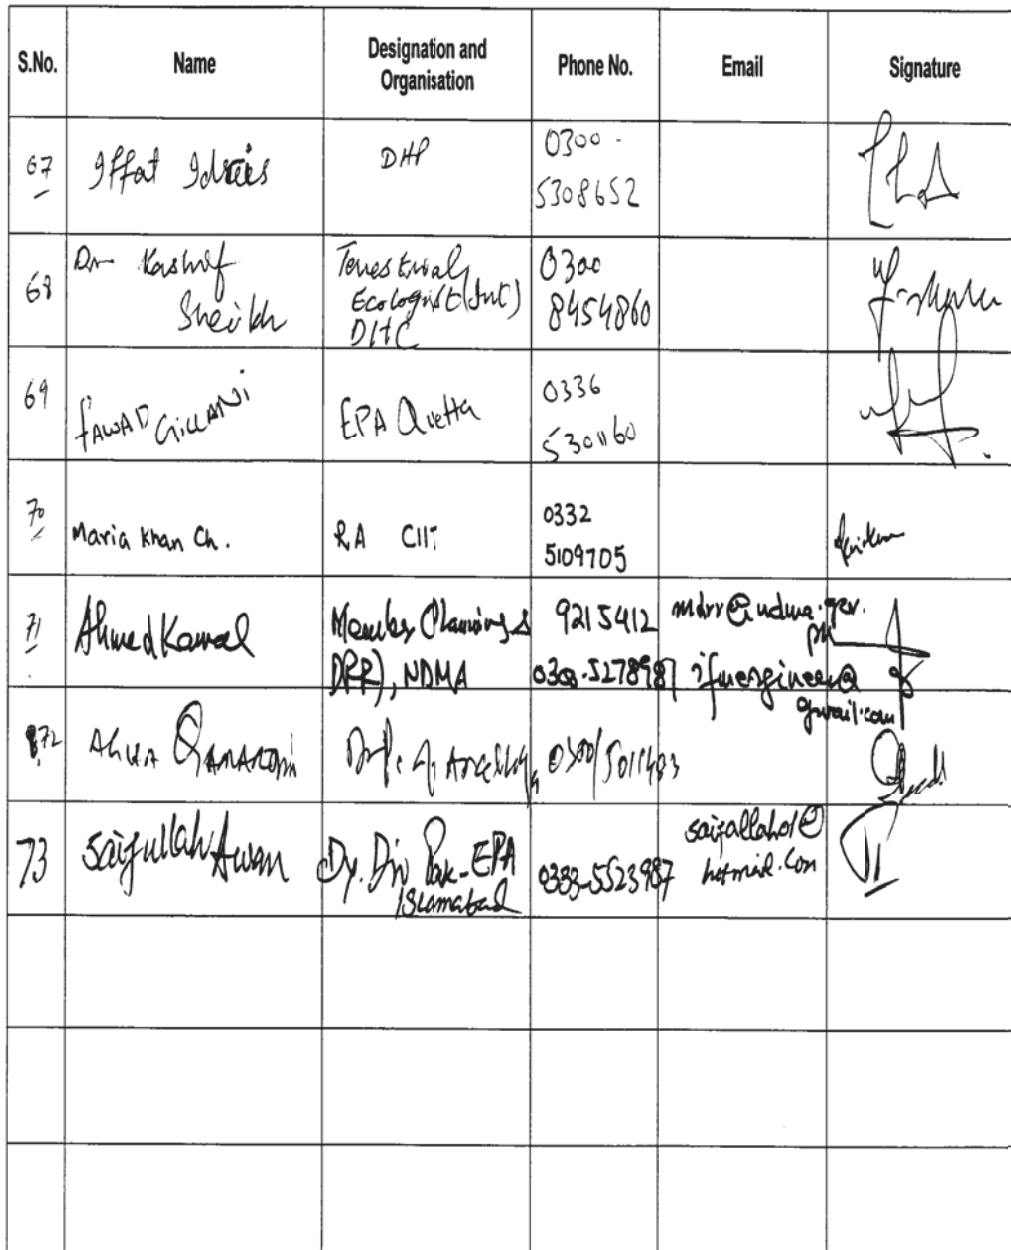 S.No.
Name
Designation and
Organisation
Phone No.
Email
Signature
67
Iffat Idrees
DHP
0300 -
5308652
68
Dr Kashif
Sheikh
Terrestrial
Ecologist
0300
8454860
69
FAWAD GILLANI
EPA Quetta
0336
5301160
70
Maria Khan Ch.
RA CIIT
0332
5109705
71
Ahmed Kamal
Member (Planning &
DRR), NDMA
9215412
mdrr@ndma.gov.
pk
gmail.com
72
73
Saifullah Awan
Dy. Dir Pak-EPA
Islamabad
0333-5523987
saifullah01@
hotmail.com